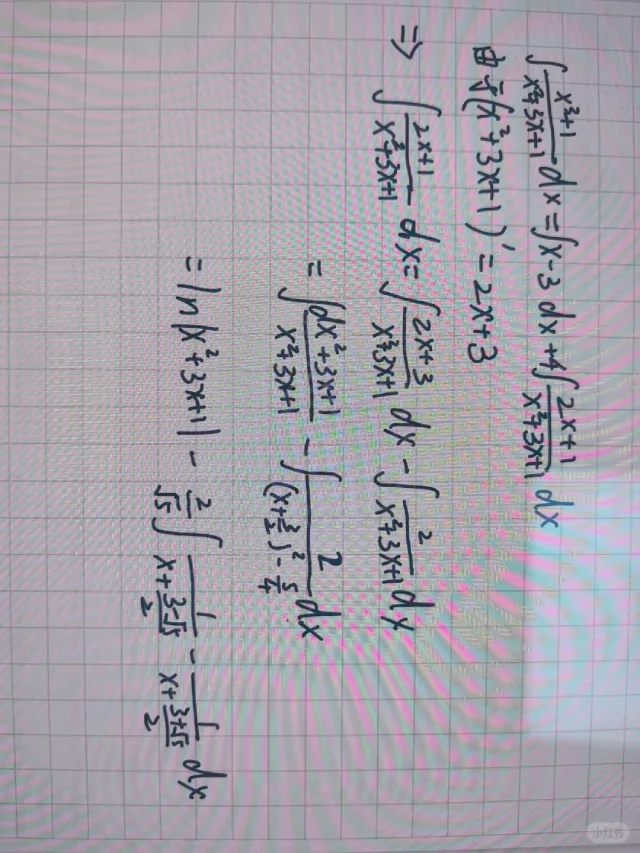 ∫ (x³+1)/(x²+3x+1) dx = ∫ x-3 dx + 4∫ (2x+1)/(x²+3x+1) dx
由于(x²+3x+1)' = 2x+3
⇒ ∫ (2x+1)/(x²+3x+1) dx = ∫ (2x+3)/(x²+3x+1) dx - ∫ 2/(x²+3x+1) dx
= ∫ (dx²+3x+1)/(x²+3x+1) - ∫ 2/((x+3/2)²-5/4) dx
= ln|x²+3x+1| - 2/√5 ∫ 1/(x+(3-√5)/2) - 1/(x+(3+√5)/2) dx
小红书